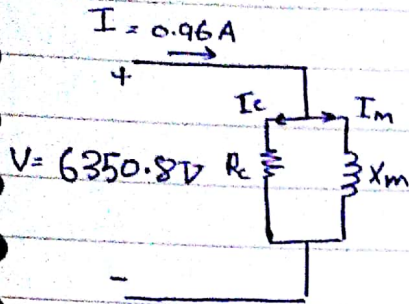 I = 0.96A
+
Ic Im
V= 6350.8V Rc Xm
-